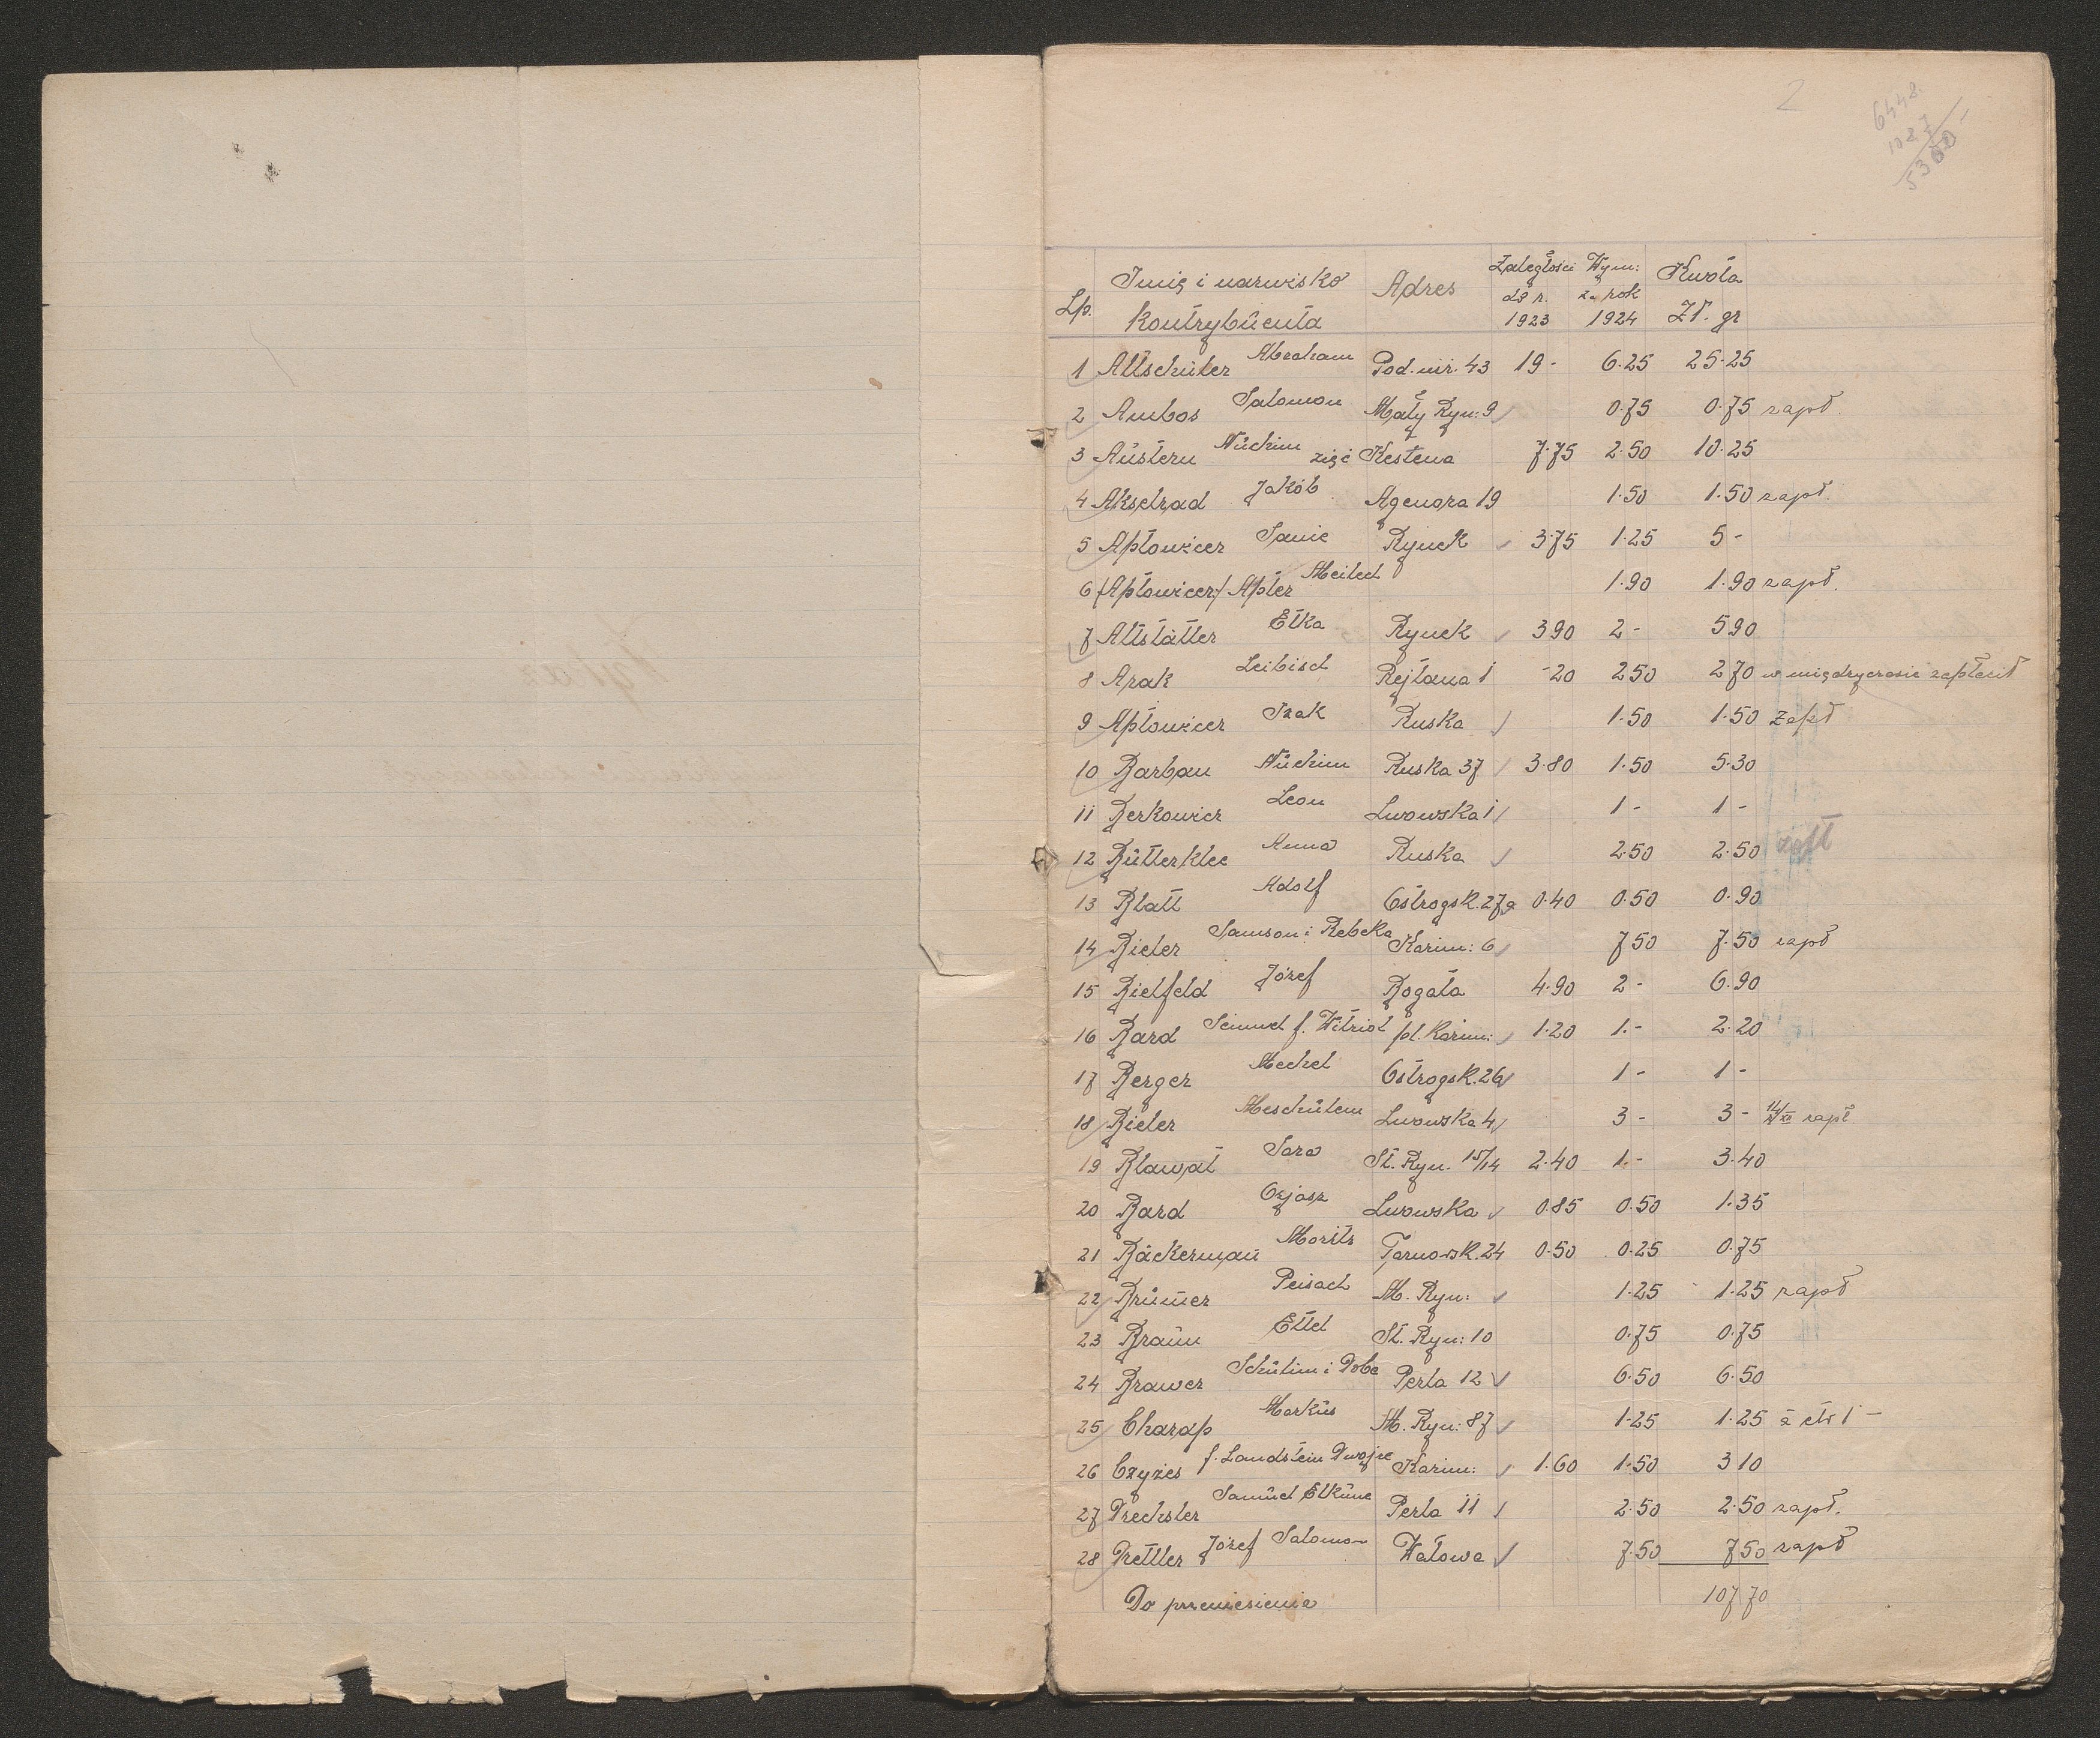 2
6448.
1087
5300 -
Lp. Imię i nazwisko kontrybuenta Adres Zaległości do r. 1923 Wym: za rok 1924 Kwota Zł. gr
1 Altschüler Abraham Pod. mir. 43 19 - 6.25 25.25
2 Ambos Salomon Mały Ryn: 9 0.75 0.75 zapł.
3 Aüstern Nüchim zięć Kestena 7.75 2.50 10.25
4 Akselrad Jakób Agenora 19 1.50 1.50 zapł.
5 Aptowicer Sanie Rynek 3.75 1.25 5 -
6 (Aptowicer) Apter Meilech 1.90 1.90 zapł.
7 Altstätter Etka Rynek 3 90 2 - 5 90
8 Apak Leibisch Rejtana 1 - 20 2 50 2 70 w międzyczasie zapłacił
9 Aptowicer Izak Ruska 1.50 1.50 zapł
10 Barban Nüchim Ruska 37 3.80 1.50 5.30
11 Berkowicz Leon Lwowska 1 1 - 1 -
12 Bütterklee Anna Ruska 2.50 2.50 zapł
13 Blatt Adolf Ostrogsk. 27a 0.40 0.50 0.90
14 Bieler Samson i Rebeka Kazim: 6 7 50 7.50 zapł
15 Bielfeld Józef Bogata 4.90 2 - 6.90
16 Bard Semmel f. Witriol pl. Kazim: 1.20 1.- 2.20
17 Berger Mechel Ostrogsk. 26 1 - 1 -
18 Bieler Meschülem Lwowska 4 3 - 3 - zapł
19 Blawat Sara St. Ryn. 15/14 2.40 1.- 3.40
20 Bard Ozjasz Lwowska 0.85 0.50 1.35
21 Bäckerman Moritz Tarnowsk. 24 0.50 0.25 0.75
22 Brüner Peisach M. Ryn: 1.25 1.25 zapł
23 Braün Ettel St. Ryn: 10 0.75 0.75
24 Brawer Schülim i Dobe Perla 12 6.50 6.50
25 Charap Markus M. Ryn: 87 1.25 1.25
26 Czyżes f. Landstein Dwojre Kazim: 1.60 1.50 3 10
27 Drechsler Samüel Elküne Perla 11 2.50 2.50 zapł.
28 Drettler Józef Salomon Wałowa 7.50 7 50 zapł
Do przeniesienia 107 70